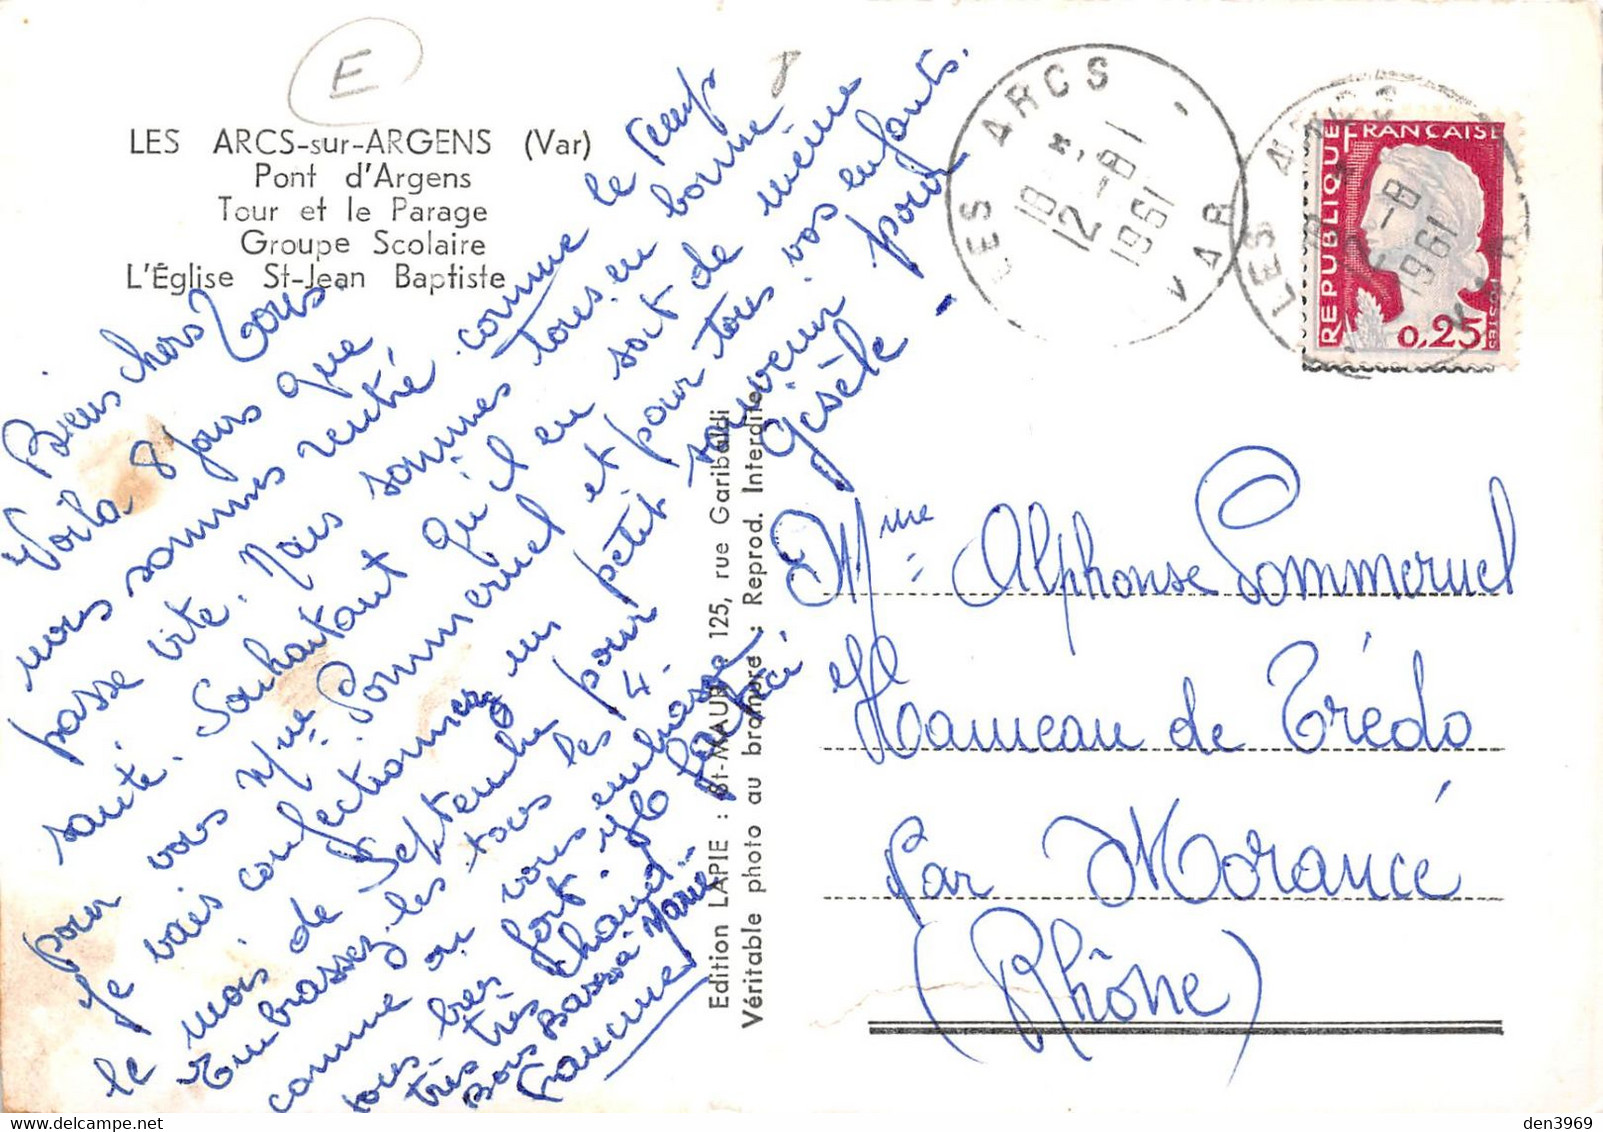 E
8
LES ARCS-sur-ARGENS (Var)
Pont d'Argens
Tour et le Parage
Groupe Scolaire
L'Église St-Jean Baptiste
Biens chers Tous.
Voila 8 jours que
nous sommes rentré comme le temp
passe vite. Nous sommes tous en bonne
santé. Souhaitant qu'il en soit de même
pour vous Mme Pommeruel et pour tous vos enfants.
Je vais confectionner un petit souvenir pour
le mois de Septembre pour Gisèle -
Embrassez-les tous les 4.
comme on vous embrasse
tous bres fort.
très très chaud
Bons Baisers Marie
Francine
Edition LAPIE : St-MAUR 125, rue Garibaldi
Véritable photo au bromure : Reprod. Interdite
LES ARCS
18 H
12-8
1961
VAR
LES ARCS
18 H
12-8
1961
VAR
REPUBLIQUE FRANCAISE
0,25
Mme Alphonse Pommeruel
Hameau de Trédo
par Morancé
(Rhône)
den3969